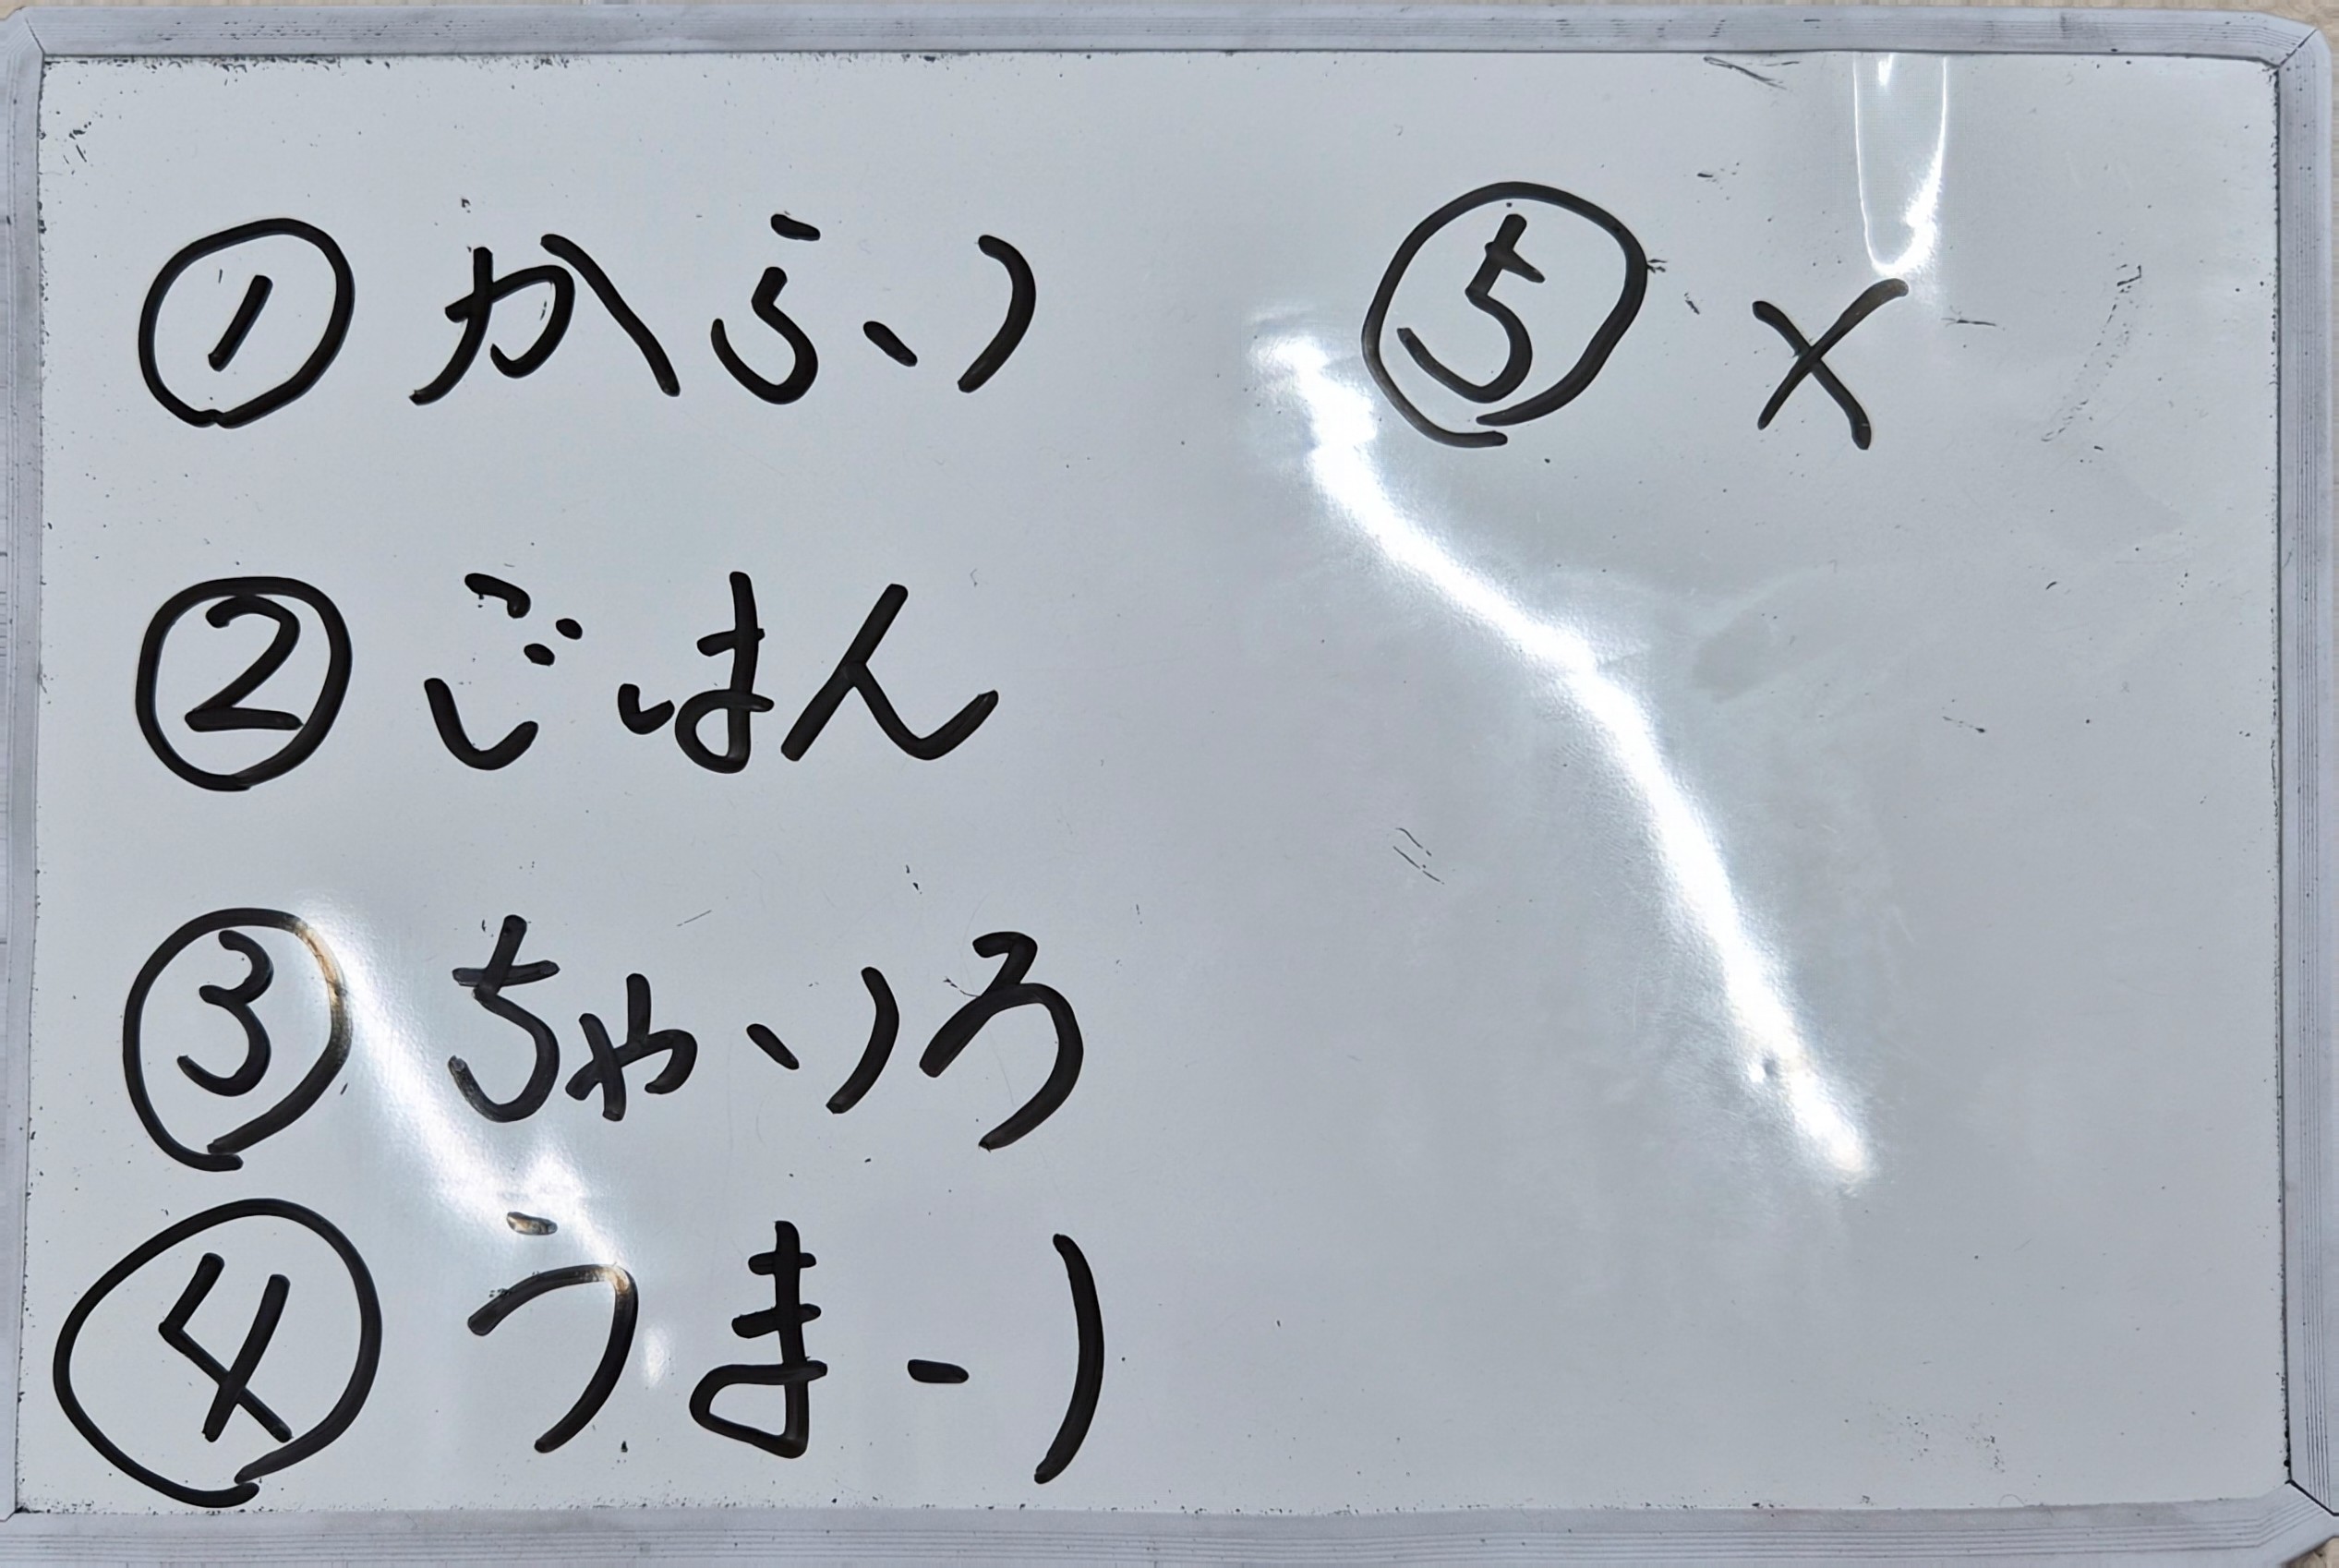 ① からい
② ごはん
③ ちゃいろ
④ うまい
⑤ ×